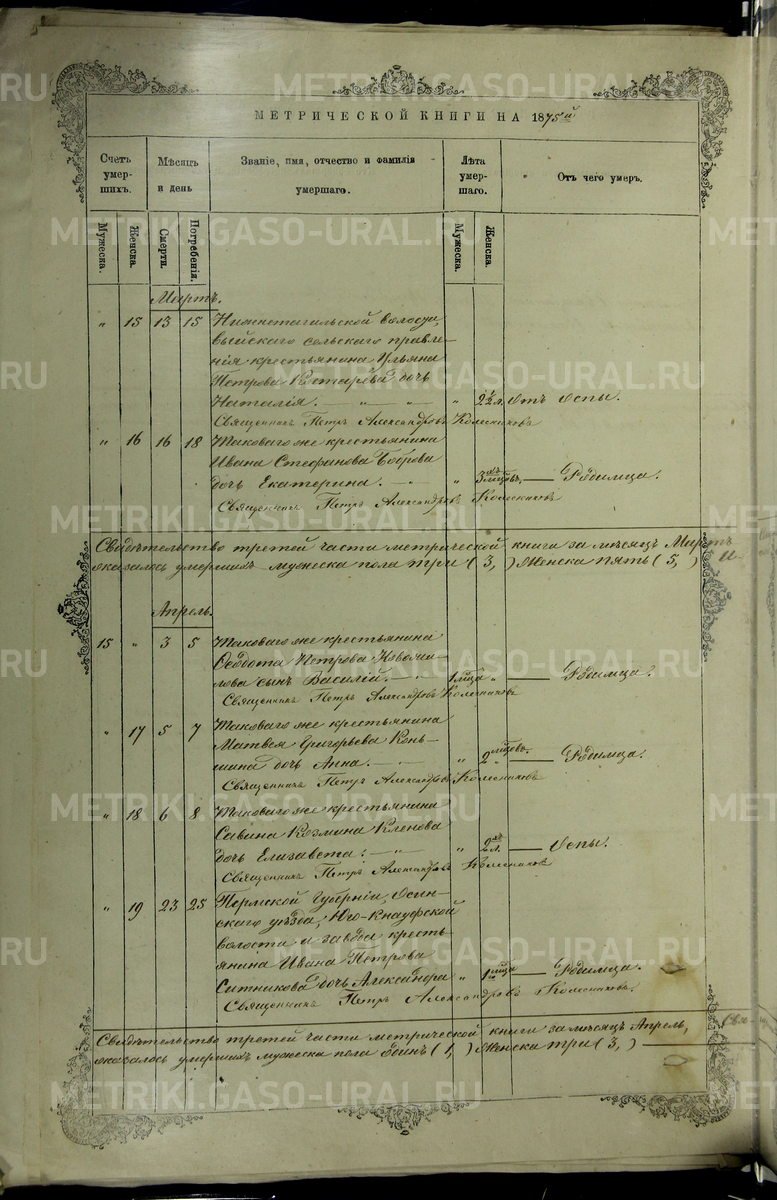 МЕТРИЧЕСКОЙ КНИГИ НА 1875й
Счетъ умершихъ.
Мѣсяцъ и день
Званіе, имя, отчество и фамилія умершаго.
Лѣта умершаго.
Отъ чего умеръ.
Мужеска.
Женска.
Смерти.
Погребенія.
Мужеска.
Женска.
Мартъ.
" 15 13 15 Нижнетагильской волости,
выйскаго сельскаго правле-
нія крестьянина Ульяна
Петрова дочь
Наталія. — " — " " 2½ л. отъ Оспы.
Священникъ Петръ Александровъ Колесниковъ
" 16 16 18 Таковаго же крестьянина
Ивана Стефанова Боброва
дочь Екатерина. — " " 3хъ мцовъ. — Родимца.
Священникъ Петръ Александровъ Колесниковъ
Свидѣтельство третей части метрической книги за мѣсяцъ Мартъ
оказалось умершихъ мужеска пола три (3,) Женска пять (5,)
Апрѣль.
15 " 3 5 Таковаго же крестьянина
Ѳеодота Петрова
сынъ Василій. — " 1 мца " — Родимца.
Священникъ Петръ Александровъ Колесниковъ
" 17 5 7 Таковаго же крестьянина
Матвея Григорьева Конь-
шина дочь Анна. — " " 2 мцовъ. — Родимца.
Священникъ Петръ Александровъ Колесниковъ
" 18 6 8 Таковаго же крестьянина
Савина Козмина Кленова
дочь Елизавета. — " " 2хъ л. — Оспы.
Священникъ Петръ Александровъ Колесниковъ
" 19 23 25 Пермской Губерніи, Осин-
скаго уѣзда, Юго-Кнауфской
волости и завода кресть-
янина Ивана Петрова
Ситникова дочь Александра " 1 мца — Родимца.
Священникъ Петръ Александровъ Колесниковъ.
Свидѣтельство третей части метрической книги за мѣсяцъ Апрель,
оказалось умершихъ мужеска пола одинъ (1,) Женска три (3,)
METRIKI.GASO-URAL.RU